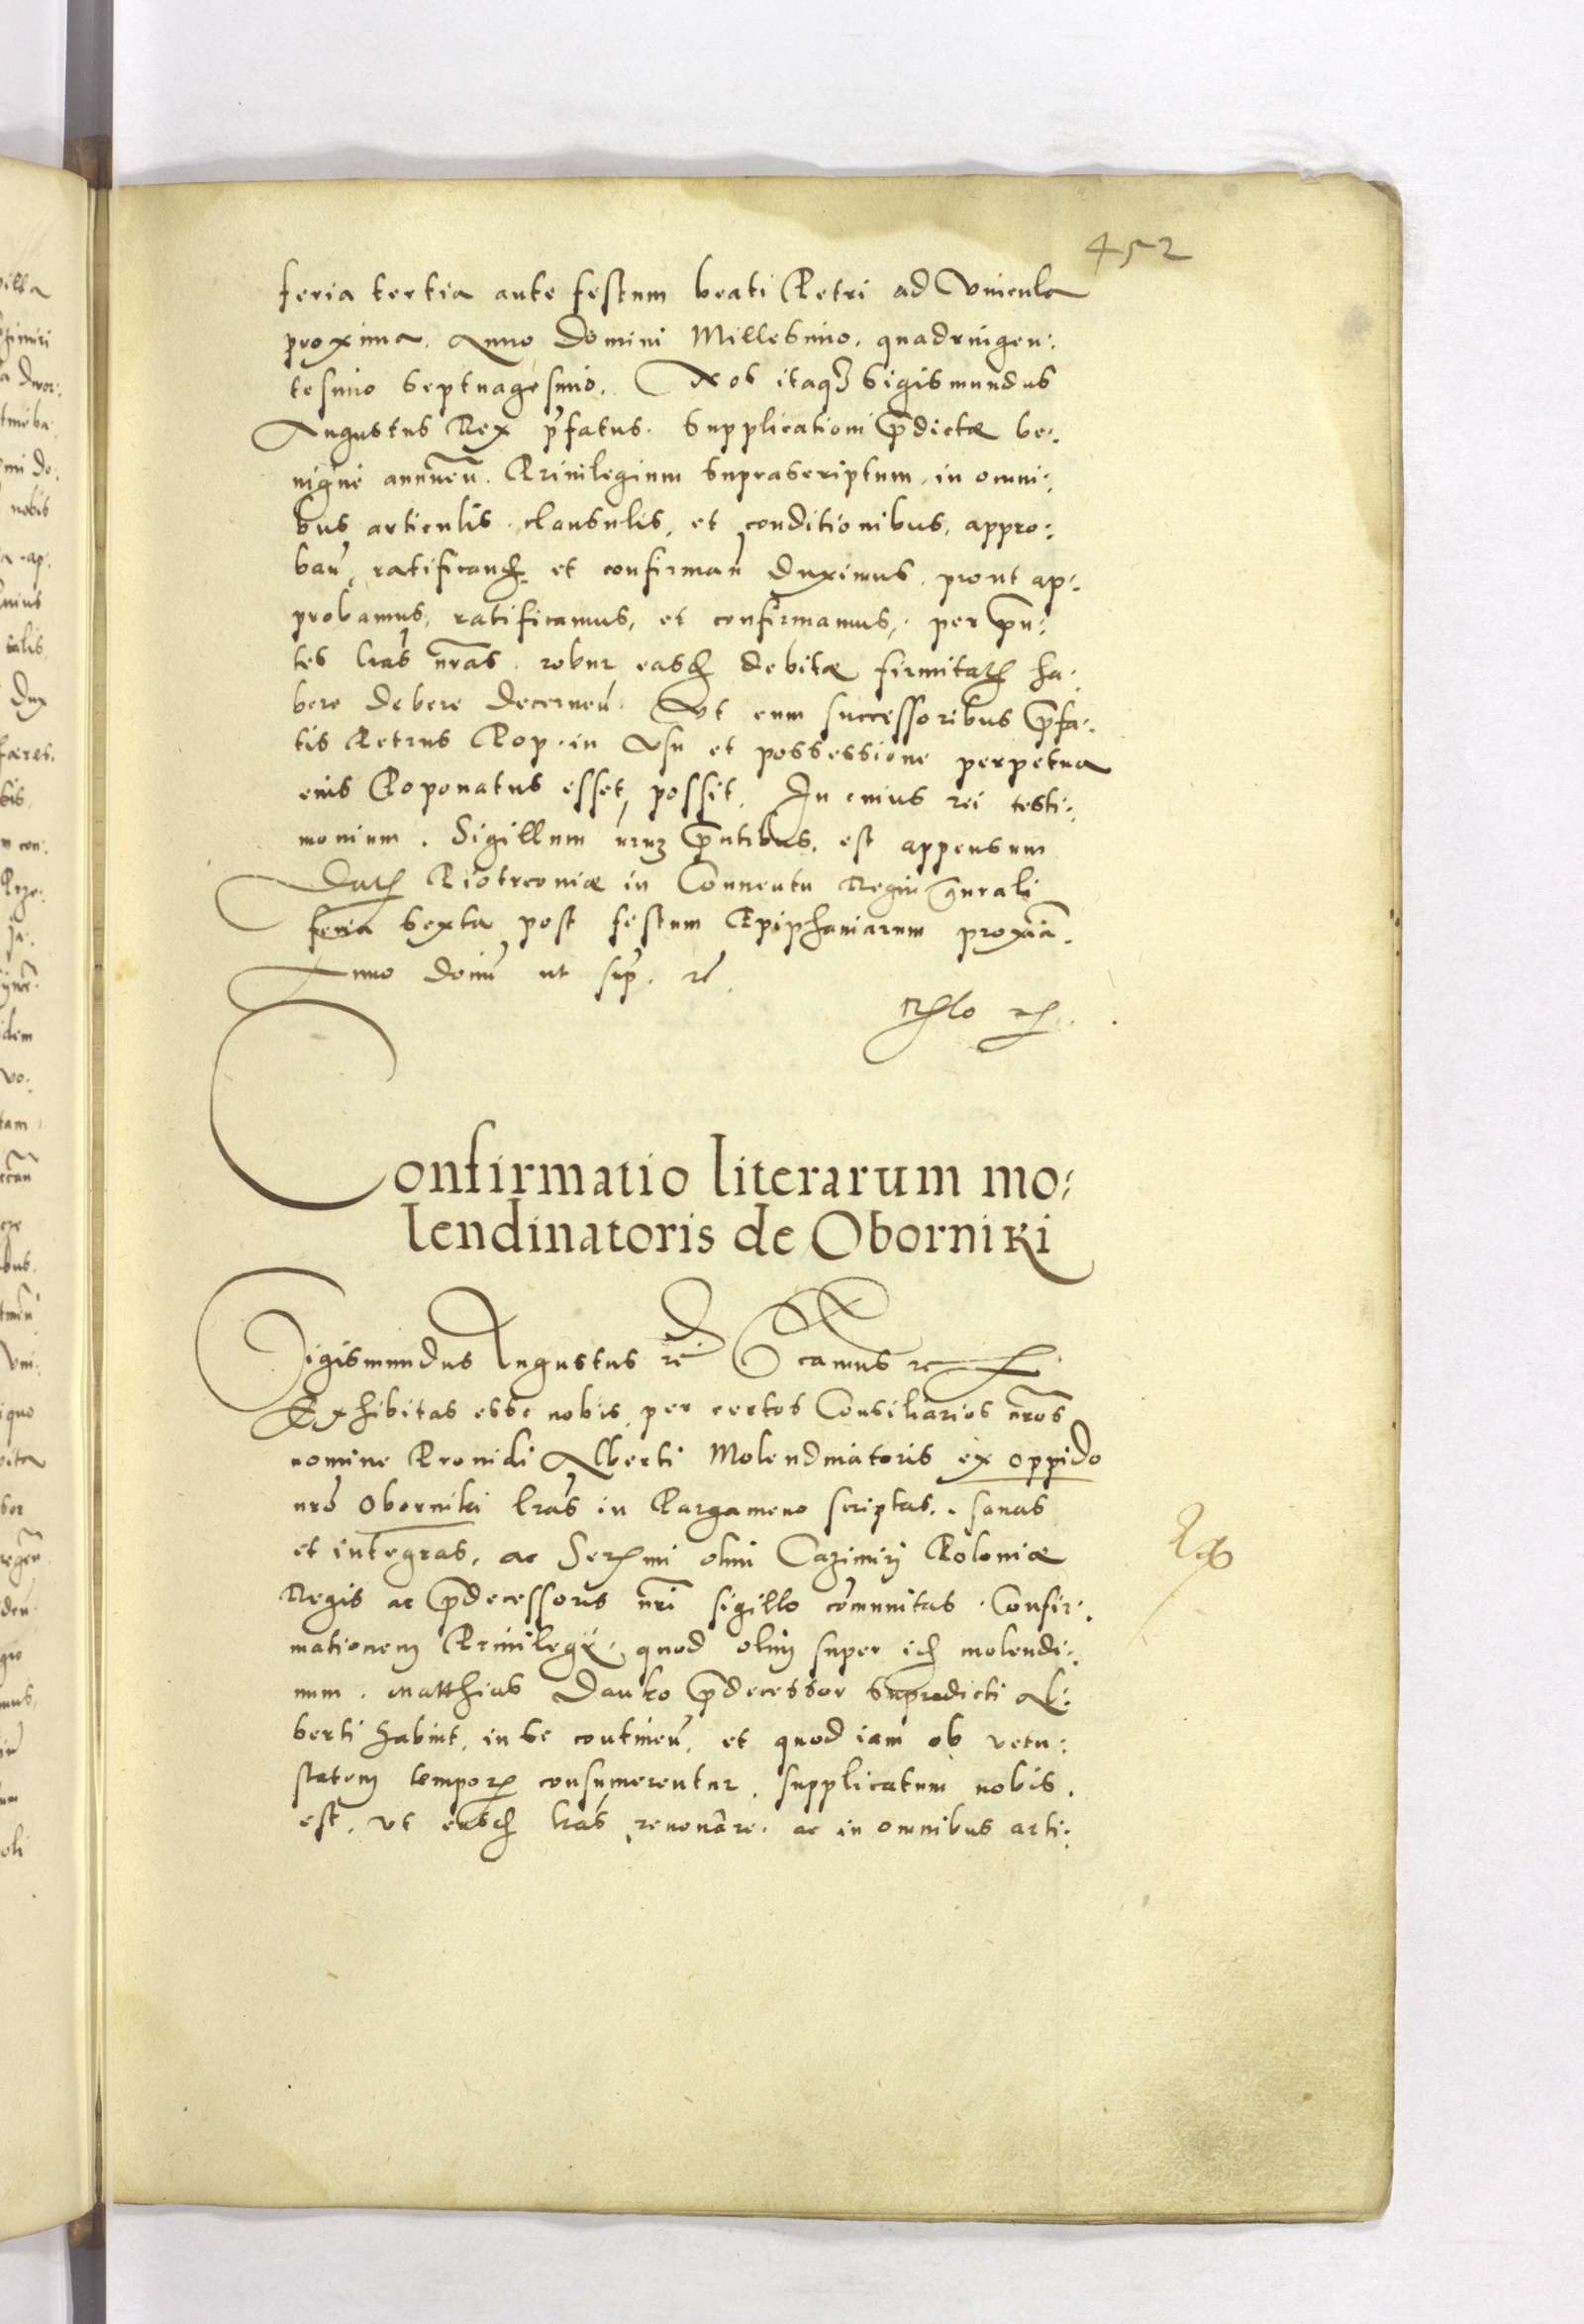 452
feria tertia ante festum beati Petri ad Vincula
proxima. Anno Domini Millesimo. quadringen:
tesimo septuagesimo. Nos itaq3 Sigismundus
Augustus Rex p̄fatus. supplicationi p̄dictæ be:
nigne annueñ. Priuilegium suprascriptum, in omni:
bus articulis. clausulis, et conditionibus, appro:
bañ, ratificand. et confirmañ duximus, prout ap:
probamus, ratificamus, et confirmamus, per p̄n:
tes l̄ras n̄ras. robur easd debitæ firmitatꝭ ha:
bere debere decerneñ. Vt cum successoribus p̄fa:
tis Petrus Pop. in Vsu et possessione perpetua
eius Poponatus esset, possit. In cuius rei testi:
monium. Sigillum n̄rum p̄ntibus. est appensum
Datꝭ Piotrcouiæ in Conuentu Regni gn̄rali
feria sexta post festum Epiphaniarum proxīa.
Anno dom̄ ut sup̄. rc̄.
Confirmatio literarum mo:
lendinatoris de Oborniki
Sigismundus Augustus rc̄
Exhibitas esse nobis per certos Consiliarios n̄ros
nomine Prouidi Alberti Molendinatoris ex oppido
n̄ro Oborniki l̄ras in Pargameno scriptas, sanas
et integras, ac Serꝭmi olim Cazimiri Poloniæ
Regis ac p̄decessoris n̄ri sigillo com̄unitas. Confir:
mationem Priuilegij, quod olim super id molendi:
num. Matthias Danko p̄decessor supradicti Al:
berti habuit, in se contineñ, et quod iam ob vetu:
statem temporꝭ consumerentur, supplicatum nobis.
est, vt easd l̄ras renouare. ac in omnibus arti: